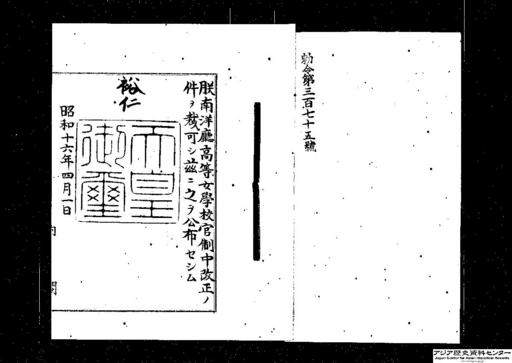 勅令第三百七十五號
朕南洋廳高等女學校官制中改正ノ
件ヲ裁可シ茲ニ之ヲ公布セシム
裕仁
天皇
御璽
昭和十六年四月一日
内
閣
アジア歴史資料センター
Japan Center for Asian Historical Records